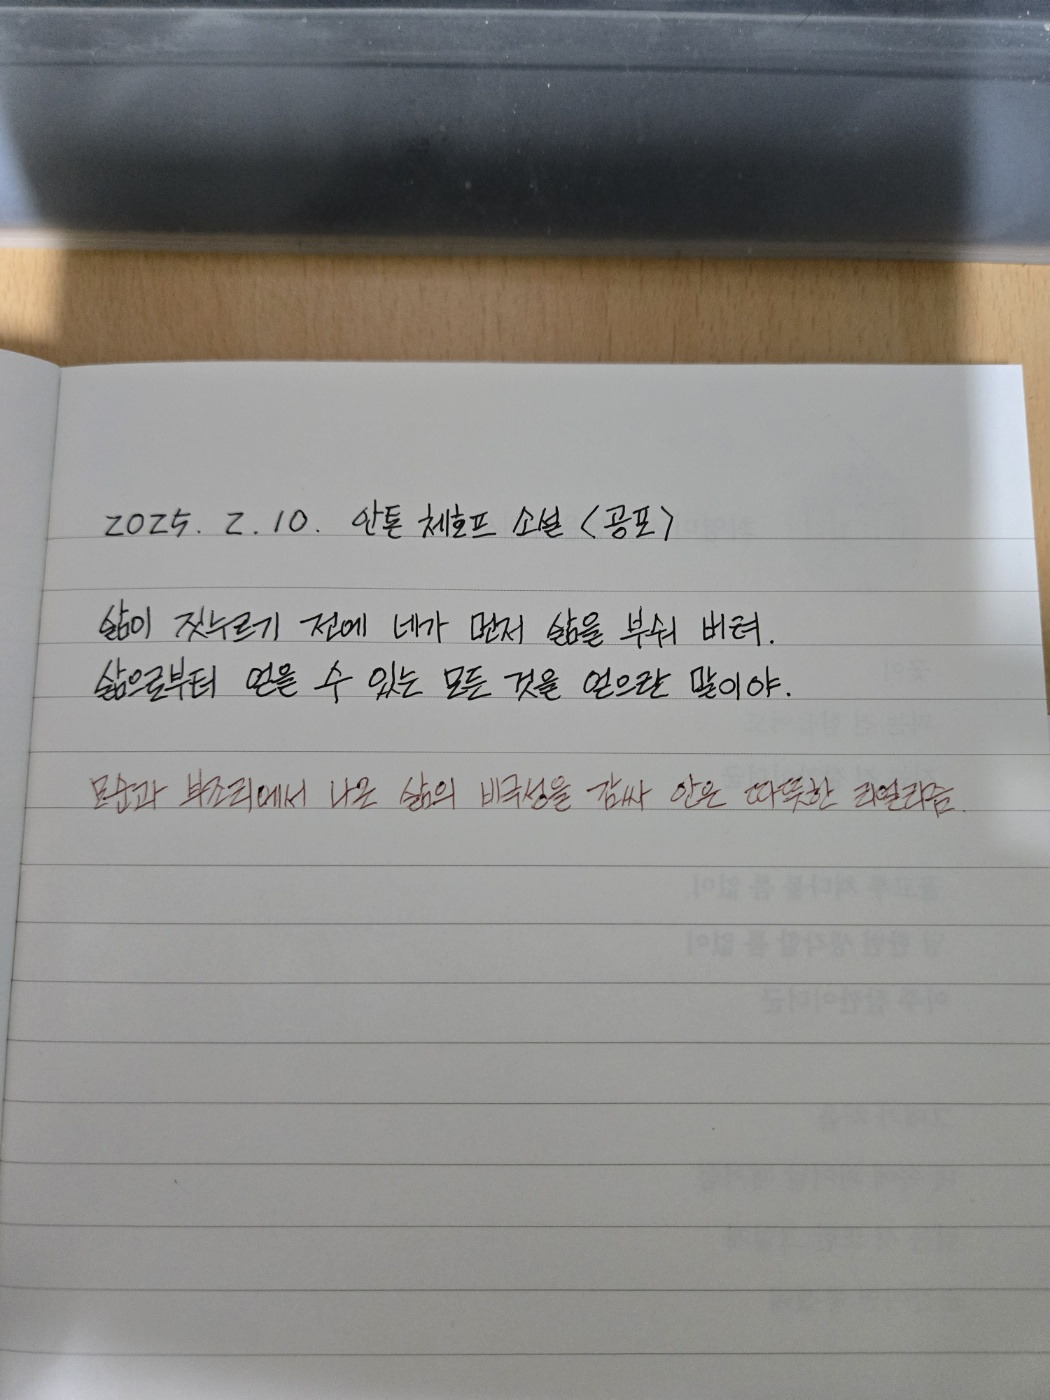 2025. 2. 10. 안톤 체호프 소설 <공포>
삶이 짓누르기 전에 네가 먼저 삶을 부숴 버려.
삶으로부터 얻을 수 있는 모든 것을 얻으란 말이야.
모순과 부조리에서 나온 삶의 비극성을 감싸 안은 따뜻한 리얼리즘.